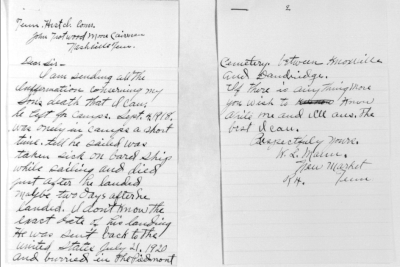 Tenn. Hist. Com.
John Trotwood Moore Chairman
Nashville Tenn.
Dear Sir-
I am sending all the
Information concerning my
sons death that I can.
he left for camps. Sept. 4, 1918.
was only in camps a short
time. till he sailed was
taken sick on board ship
while sailing and died
just after he landed
maybe two days after he
landed. I don't know the
exact date of his landing
He was sent back to the
United States July 21, 1920
and burried in the Piedmont
2
Cemetery. between Knoxville
and Dandridge.
If there is anything more
you wish to know
write me and I'll ans. the
best I can.
Respectfully yours.
New Market
Tenn